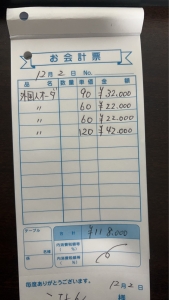 お会計票
12月2日 No.
品名 数量 単価 金額
外国人オーダ 90 ¥32.000
〃 60 ¥22.000
〃 60 ¥22.000
〃 120 ¥42.000
テーブル 合計 ¥118.000
係 名様 内消費税額等 ( %)
内消費税額等 ( %)
毎度ありがとうございます。 12月2日
様